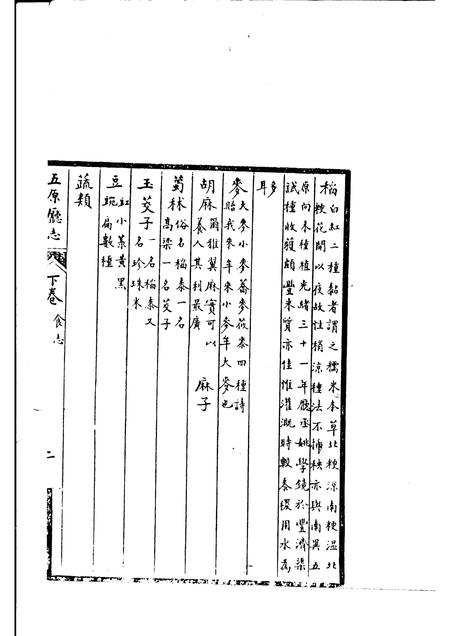 稻白紅二種黏者謂之糯米本草北粳涼南粳溫北
粳花開以夜故性稍涼種法不揷秧亦與南異五
原向未種植光緒三十一年廳丞姚學鏡於豐濟渠
試種收穫頗豐米質亦佳惟灌溉時較泰緩用水為
多耳
麥大麥小麥蕎麥莜麥四種詩
貽我來牟來小麥牟大麥也
胡麻爾雅翼麻實可以
養人其利最廣
麻子
蜀秫俗名稲泰一名
高梁一名茭子
玉茭子一名稲泰又
名珍珠米
豆紅小菉黃黑
豌扁數種
蔬類
五原廳志
下卷
食志
二